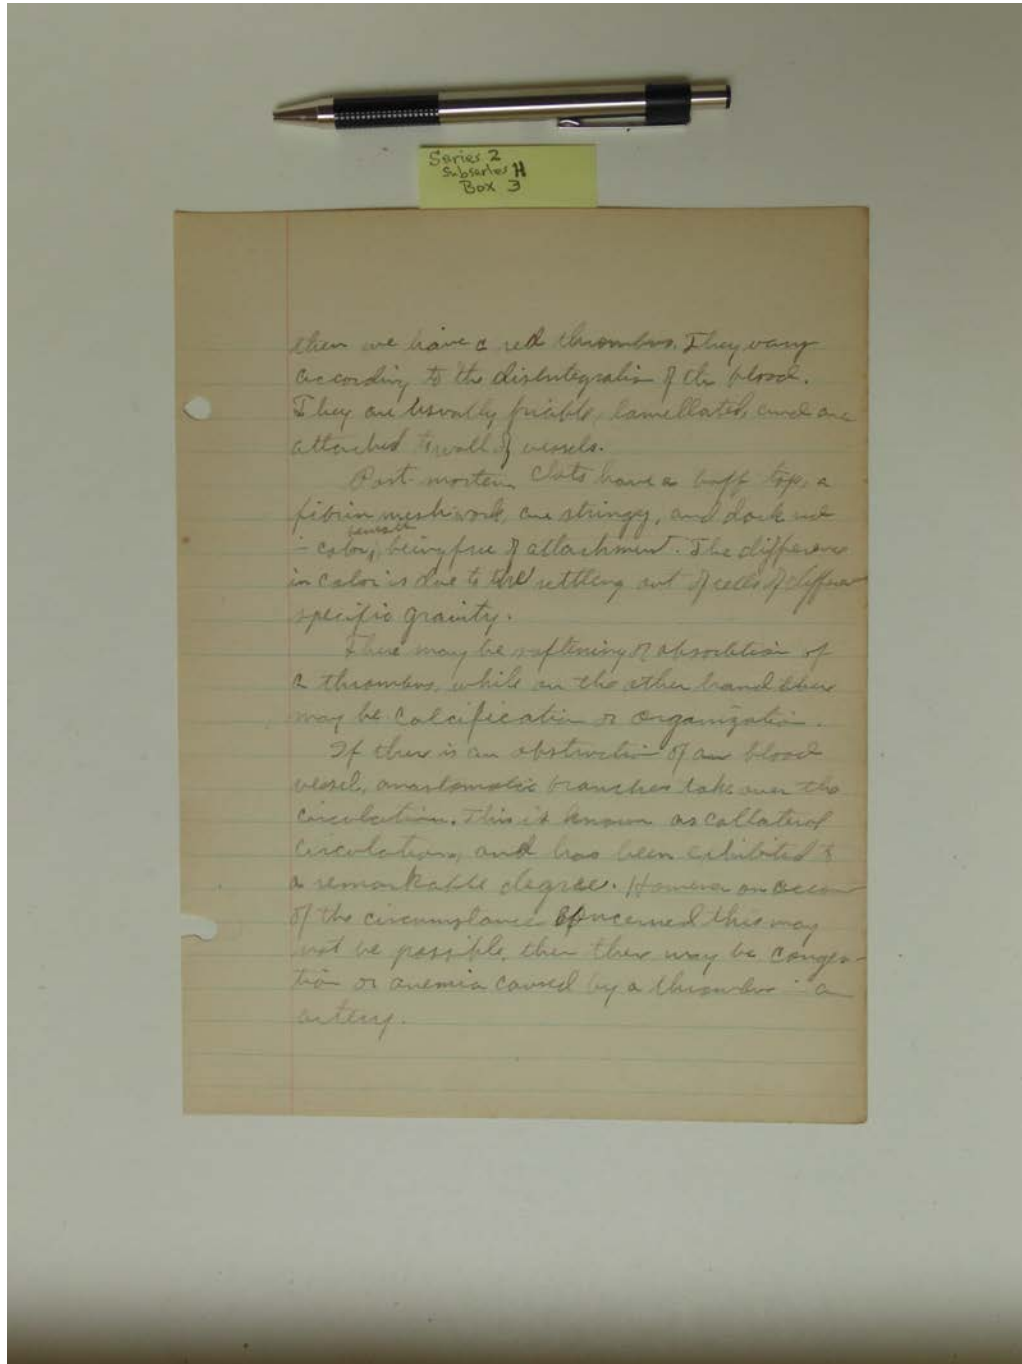 Series 2
Subseries H
Box 3
then we have a red thrombus. They vary
according to the disintegration of the blood.
They are usually friable, lamellated, and are
attached to wall of vessels.
Post-mortem clots have a buff top, a
fibrin meshwork, are stringy, and dark red
beneath
color, being free of attachment. The difference
in color is due to the settling out of cells of different
specific gravity.
There may be softening or absorbtion of
a thrombus, while on the other hand there
may be calcification or organization.
If there is an obstruction of an blood
vessel, anastomotic branches take over the
circulation. This is known as collateral
circulation, and has been exhibited to
a remarkable degree. However on account
of the circumstances concerned this may
not be possible, then there may be conges-
tion or anemia caused by a thrombus a
artery.